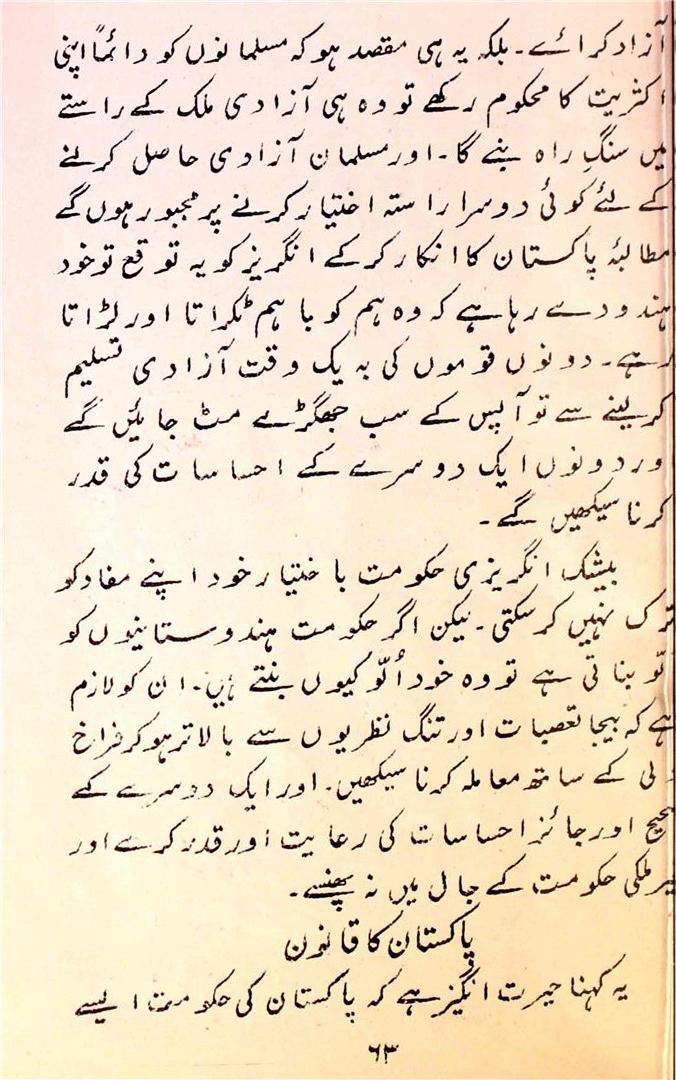 آزاد کرائے۔ بلکہ یہ ہی مقصد ہو کہ مسلمانوں کو دائماً اپنی
اکثریت کا محکوم رکھے تو وہ ہی آزادی ملک کے راستے
میں سنگِ راہ بنے گا۔ اور مسلمان آزادی حاصل کرنے
کے لئے کوئی دوسرا راستہ اختیار کرنے پر مجبور ہوں گے
مطالبۂ پاکستان کا انکار کر کے انگریز کو یہ توقع تو خود
ہندو دے رہا ہے کہ وہ ہم کو باہم ٹکراتا اور لڑاتا
رہے۔ دونوں قوموں کی بہ یک وقت آزادی تسلیم
کر لینے سے تو آپس کے سب جھگڑے مٹ جائیں گے
اور دونوں ایک دوسرے کے احساسات کی قدر
کرنا سیکھیں گے۔
بیشک انگریزی حکومت با ختیار خود اپنے مفاد کو
ترک نہیں کر سکتی۔ لیکن اگر حکومت ہندوستانیوں کو
اُلّو بناتی ہے تو وہ خود اُلّو کیوں بنتے ہیں۔ ان کو لازم
ہے کہ بیجا تعصبات اور تنگ نظریوں سے بالاتر ہو کر فراخ
دلی کے ساتھ معاملہ کرنا سیکھیں۔ اور ایک دوسرے کے
صحیح اور جائز احساسات کی رعایت اور قدر کرے اور
غیر ملکی حکومت کے جال میں نہ پھنسے۔
پاکستان کا قانون
یہ کہنا حیرت انگیز ہے کہ پاکستان کی حکومت ایسے
۶۳